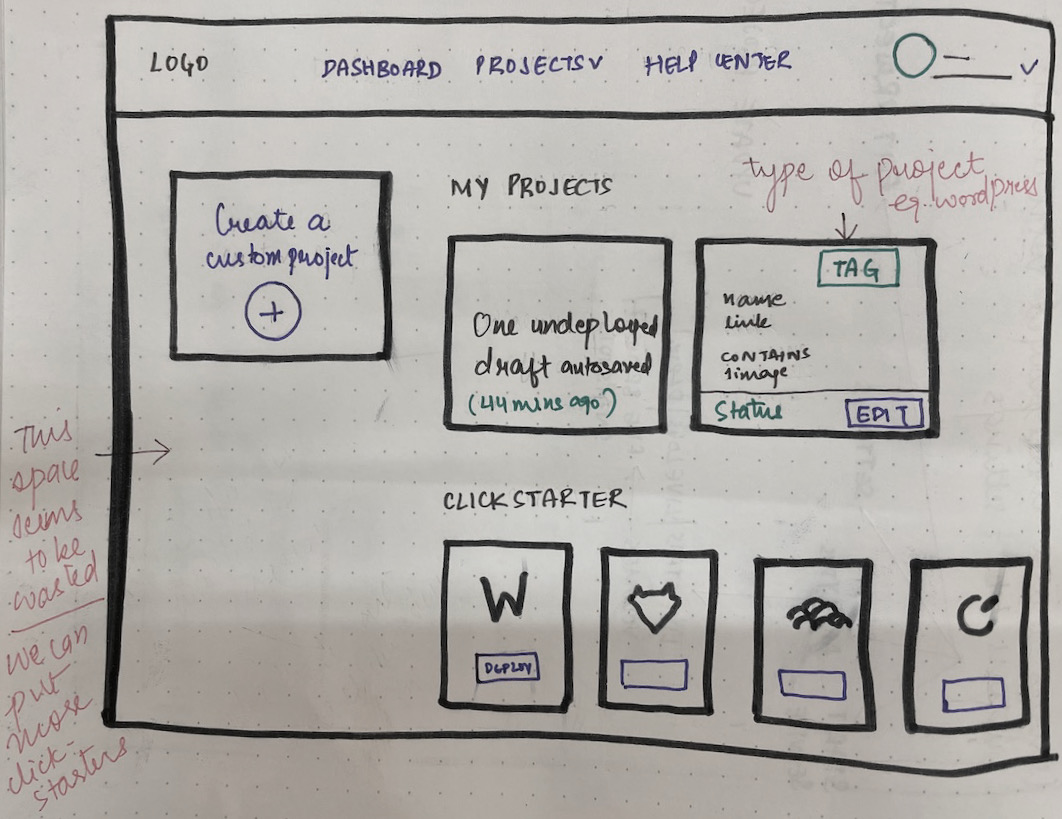 LOGO
DASHBOARD PROJECTS HELP CENTER
type of project
eg. wordpress
Create a
custom project
+
MY PROJECTS
One undeployed
draft autosaved
(44 mins ago)
TAG
name
link
CONTAINS
1 image
Status EDIT
This
space
seems
to be
wasted
we can
put
more
click-
starters
CLICKSTARTER
W
DEPLOY